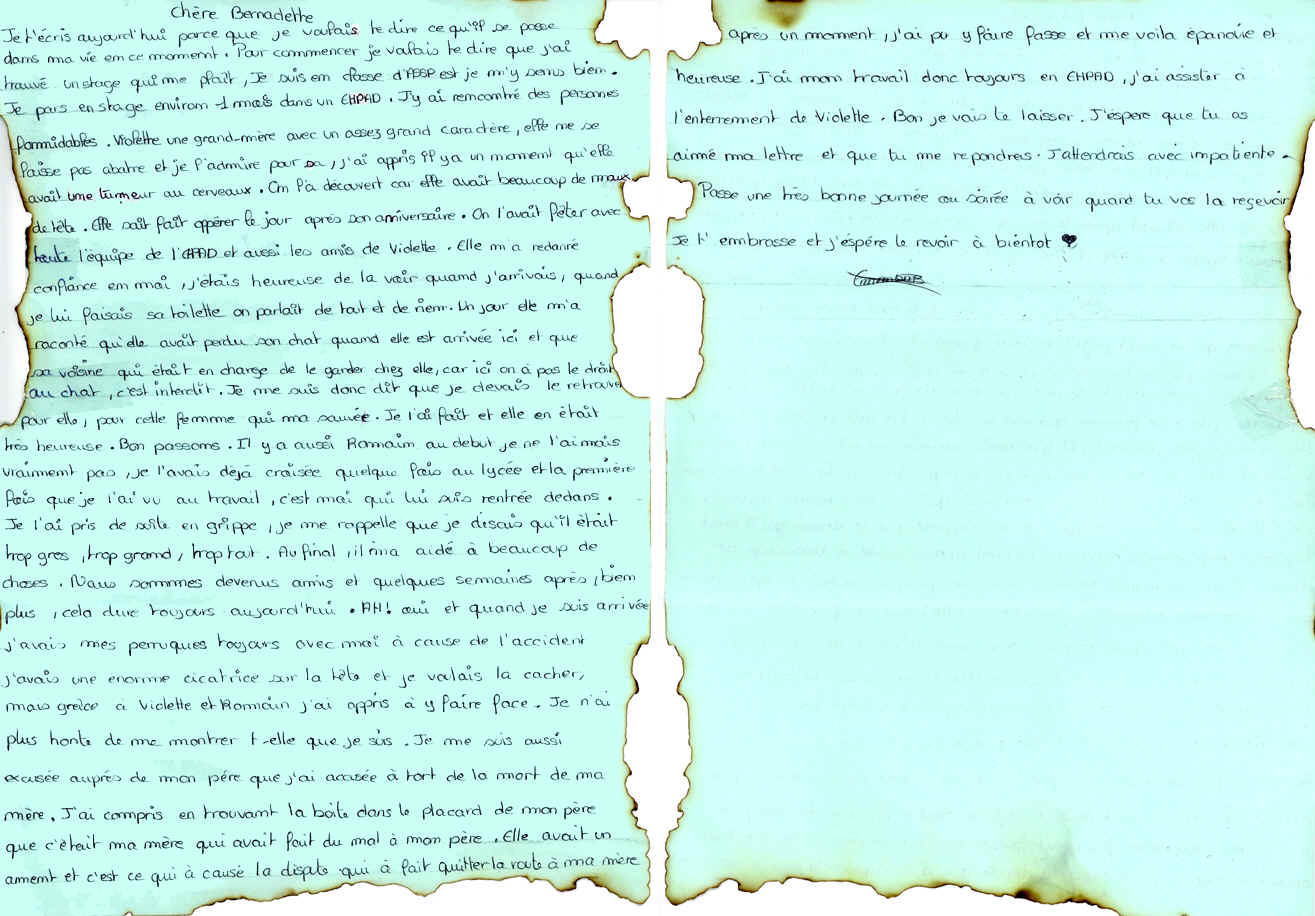 Chère Bernadette
Je t'écris aujourd'hui parce que je voulais te dire ce qu'il se passe
dans ma vie em ce momemt. Pour commencer je voulais te dire que j'ai
trouvé un stage qui me plaît, Je suis em classe d'ASSP est je m'y sens bien.
Je pars en stage environ 1 mois dans un EHPAD. J'y ai remcontré des persomes
formidables. Violette une grand-mère avec un assez grand caractère, elle me se
laisse pas abatre et je l'admire pour sa, j'ai appris il y a un moment qu'elle
avait une turmeur au cerveaux. On l'a découvert car elle avait beaucoup de maux
de tête. Elle sait fait oppérer le jour après son anniversaire. On l'avait fêter avec
toute l'équipe de l'EHPAD et aussi les amis de Violette. Elle m'a redonné
confiance em moi, j'étais heureuse de la voir quand j'arrivais, quand
je lui faisais sa toilette on parlait de tout et de riem. Un jour elle m'a
raconté qu'elle avait perdu son chat quand elle est arrivée ici et que
sa voisine qui était en charge de le garder chez elle, car ici on a pas le droit
au chat, c'est interdit. Je me suis donc dit que je devais le retrouver
pour elle, pour cette femme qui ma sauvée. Je l'ai fait et elle en était
très heureuse. Bon passoms. Il y a aussi Romaim au debut je ne l'aimais
vraimment pas, je l'avais déjà croisée quelque fois au lycée et la première
fois que je l'ai vu au travail, c'est moi qui lui suis rentrée dedans.
Je l'ai pris de suite en grippe, je me rappelle que je disais qu'il était
trop gros, trop grand, trop tout. Au final, il m'a aidé à beaucoup de
choses. Nous sommmes devenus amis et quelques semaines après, biem
plus, cela dure toujours aujourd'hui. AH! oui et quand je suis arrivée
j'avais mes perruques toujours avec moi à cause de l'accident
j'avais une enorme cicatrice sur la tête et je voulais la cacher,
mais grâce à Violette et Romain j'ai appris à y faire face. Je n'ai
plus honte de me montrer t-elle que je suis. Je me suis aussi
excusée auprés de mon pére que j'ai acusée à tort de la mort de ma
mère. J'ai compris en trouvant la boite dans le placard de mon père
que c'était ma mère qui avait fait du mal à mon père. Elle avait un
amemt et c'est ce qui à causé la dispute qui à fait quitter la route à ma mère
après un moment, j'ai pu y faire fasse et me voila épanouie et
heureuse. J'ai mon travail donc toujours en EHPAD, j'ai assister à
l'enterrement de Violette. Bon je vais te laisser. J'éspere que tu as
aimé ma lettre et que tu me repondres. J'attendrais avec impatiente.
Passe une très bonne journée ou soirée à voir quand tu vas la reçevoir
Je t'embrasse et j'éspére te revoir à bientot